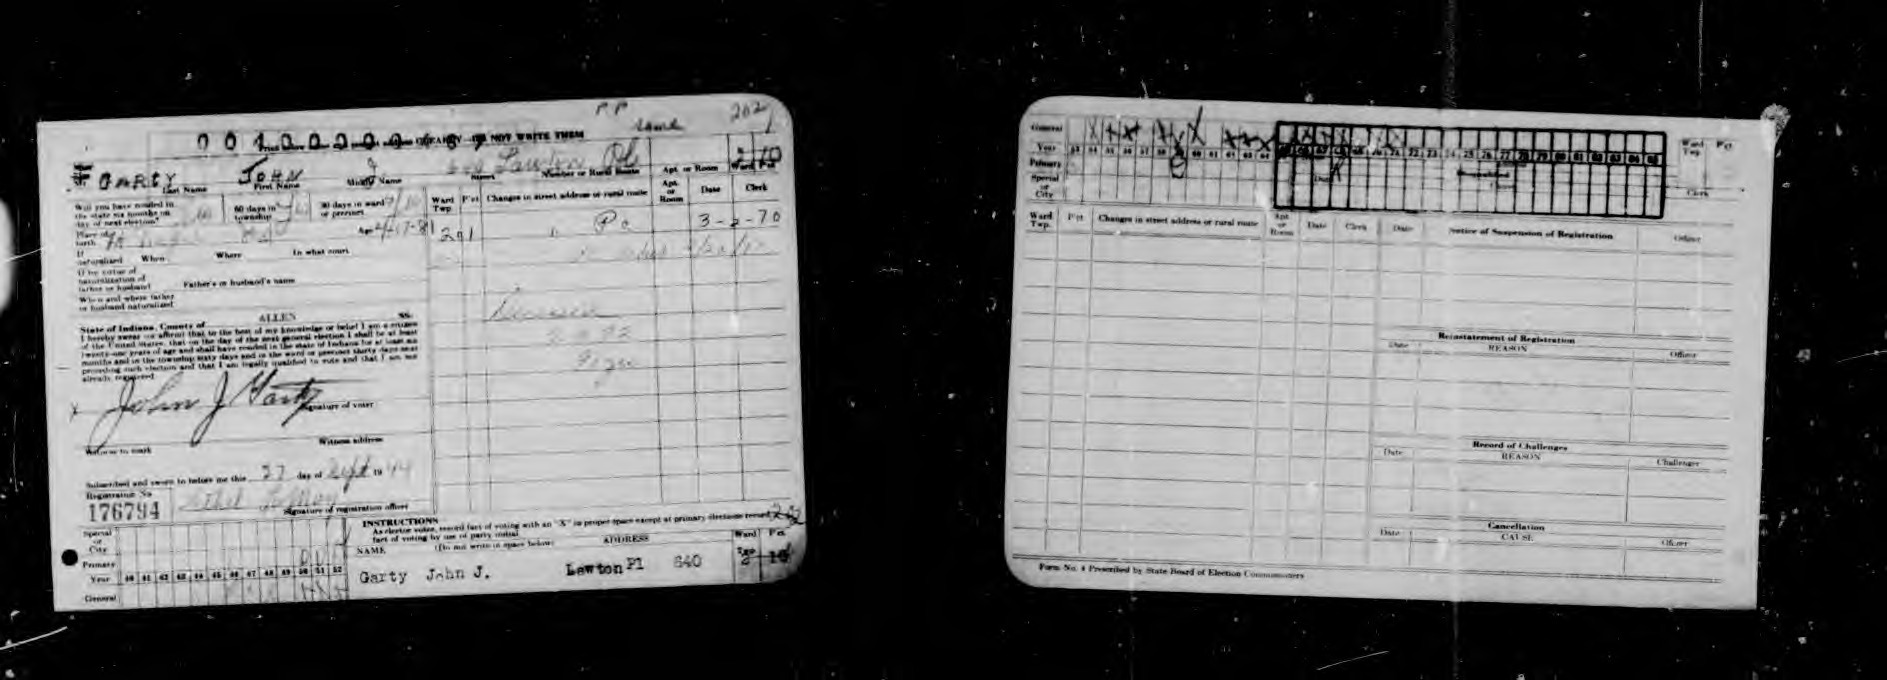 P P 202
same 1
NOT WRITE THEM
GARTY JOHN J Lawton Pl 10
Last Name First Name Middle Name Street Number or Rural Route Apt. or Room Ward Pct
Will you have resided in the state six months on day of next election? 60 days in township 30 days in ward or precinct
Ward Twp. P'ct Changes in street address or rural route Apt. or Room Date Clerk
Place of birth Age
201 " Pa 3-2-70
If naturalized When Where In what court
If by virtue of naturalization of father or husband Father's or husband's name
When and where father or husband naturalized
State of Indiana, County of ALLEN SS.
I hereby swear (or affirm) that to the best of my knowledge or belief I am a citizen
of the United States, that on the day of the next general election I shall be at least
twenty-one years of age and shall have resided in the state of Indiana for at least six
months and in the township sixty days and in the ward or precinct thirty days next
preceding such election and that I am legally qualified to vote and that I am not
already registered
X John J Garty
Signature of voter
Witness to mark Witness address
Subscribed and sworn to before me this 27 day of Sept 19 44
Registration No
176794 Ethel
Signature of registration officer
INSTRUCTIONS
As elector votes, record fact of voting with an "X" in proper space except at primary elections record
fact of voting by use of party initial
NAME (Do not write in space below) ADDRESS Ward P'ct
Garty John J. Lawton Pl 640 2 10
Special or City
Primary
Year 40 41 42 43 44 45 46 47 48 49 50 51 52
General
General
Year 53 54 55 56 57 58 59 60 61 62 63 64 65 66 67 68 69 70 71 72 73 74 75 76 77 78 79 80 81 82 83 84 85
Primary
Special or City
Ward Twp. P'ct
Clerk
Ward Twp. P'ct Changes in street address or rural route Apt. or Room Date Clerk Date Notice of Suspension of Registration Officer
Reinstatement of Registration
Date REASON Officer
Record of Challenges
Date REASON Challenger
Cancellation
Date CAUSE Officer
Form No. 4 Prescribed by State Board of Election Commissioners